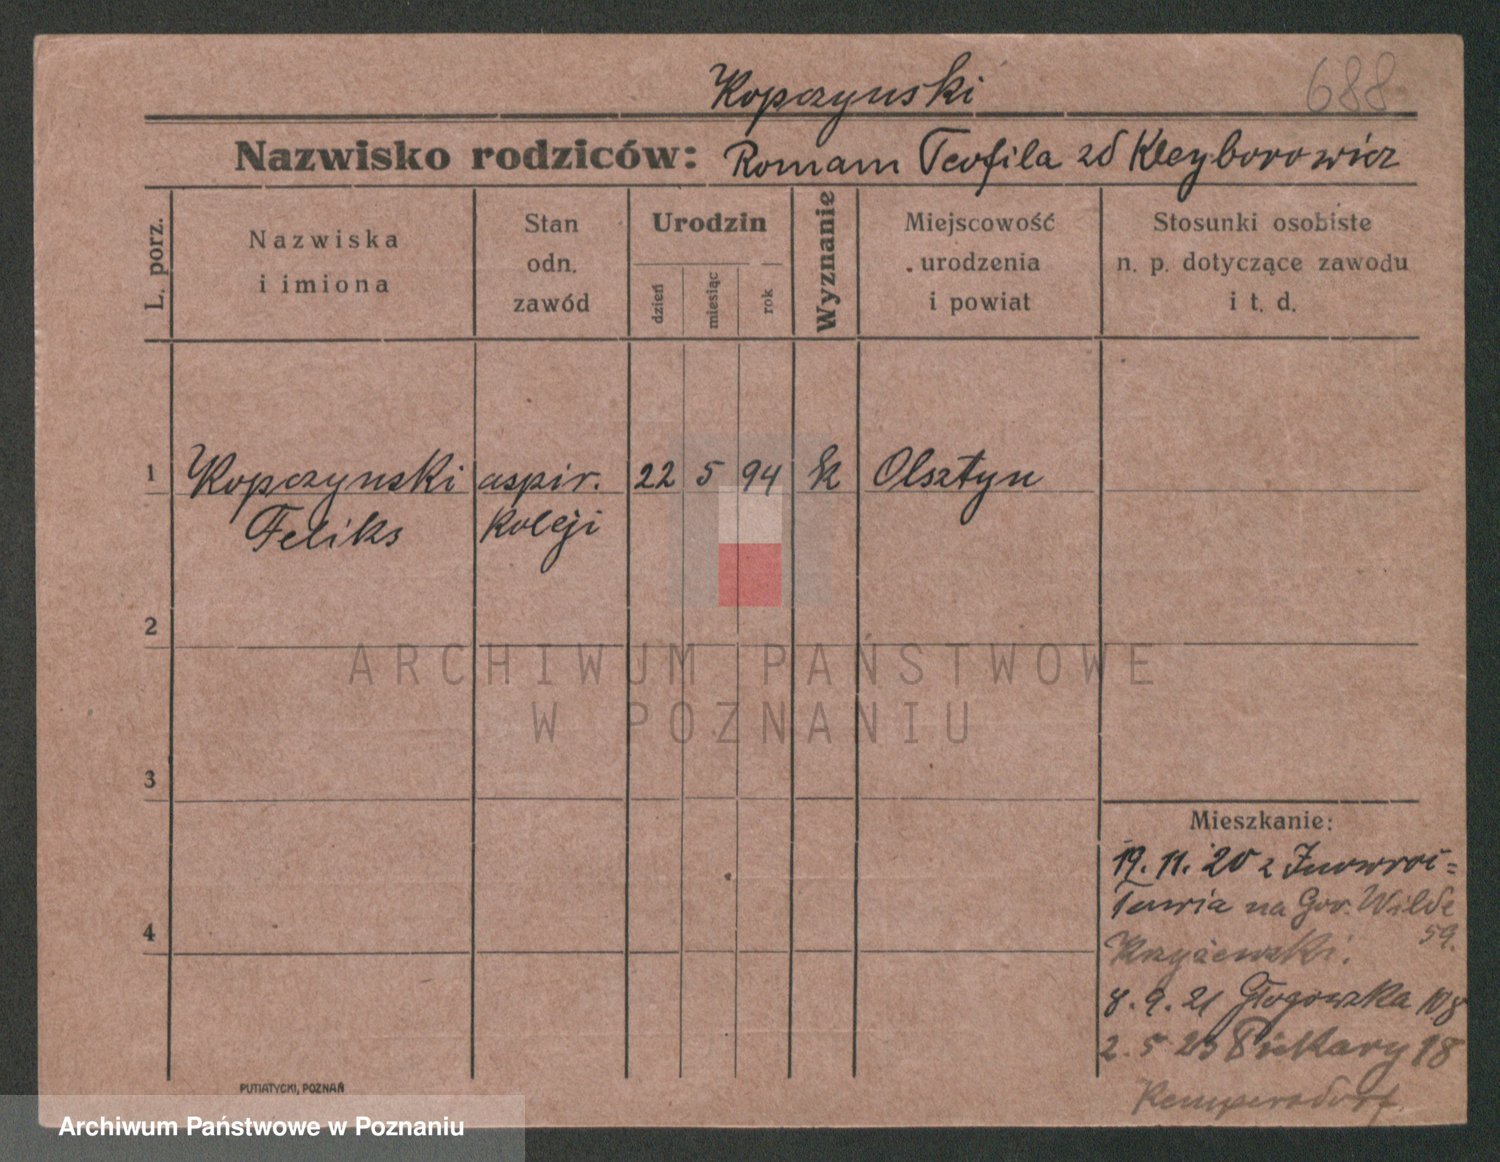 Kopczynski
688
Nazwisko rodziców: Romam Teofila zd Kleyborowicz
L. porz.
Nazwiska
i imiona
Stan
odn.
zawód
Urodzin
dzień
miesiąc
rok
Wyznanie
Miejscowość
urodzenia
i powiat
Stosunki osobiste
n. p. dotyczące zawodu
i t. d.
1 Kopczynski aspir. 22 5 94 k Olsztyn
Feliks Koleji
2
ARCHIWUM PAŃSTWOWE
W POZNANIU
3
4
Mieszkanie:
19. 11. 20 z Inowroc=
ławia na Gór. Wilde
59.
Krzyżewski.
8. 9. 21 Głogowska 108
2. 5 23 Piekary 18
Kempersdorf.
PUTIATYCKI, POZNAŃ
Archiwum Państwowe w Poznaniu